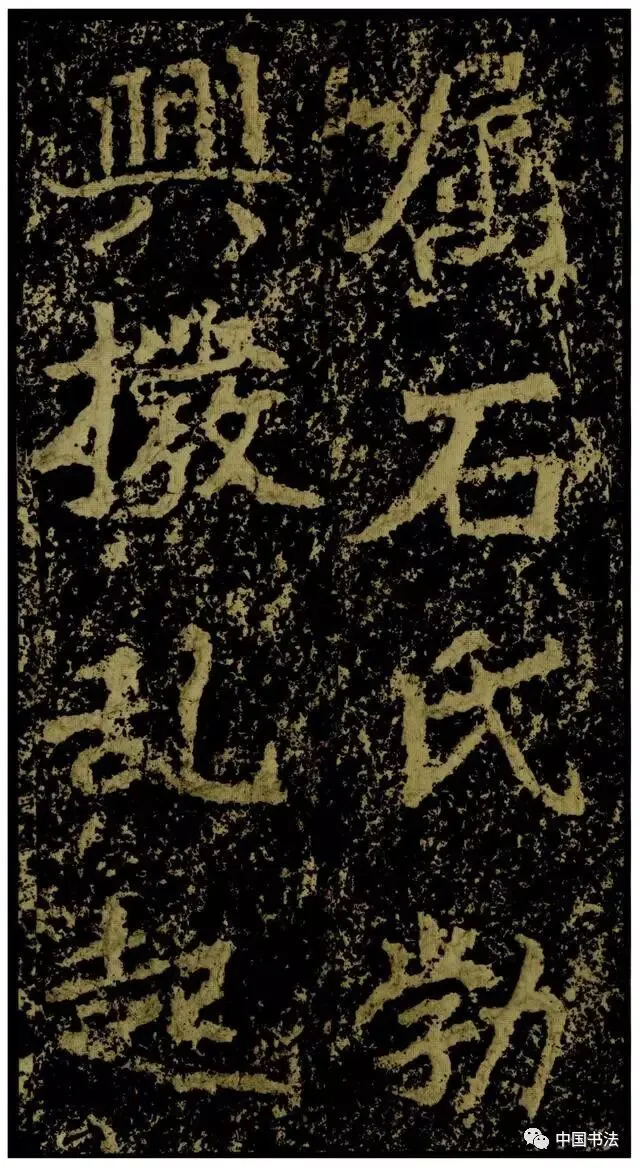 属石氏勃
興撥乱起
中国书法